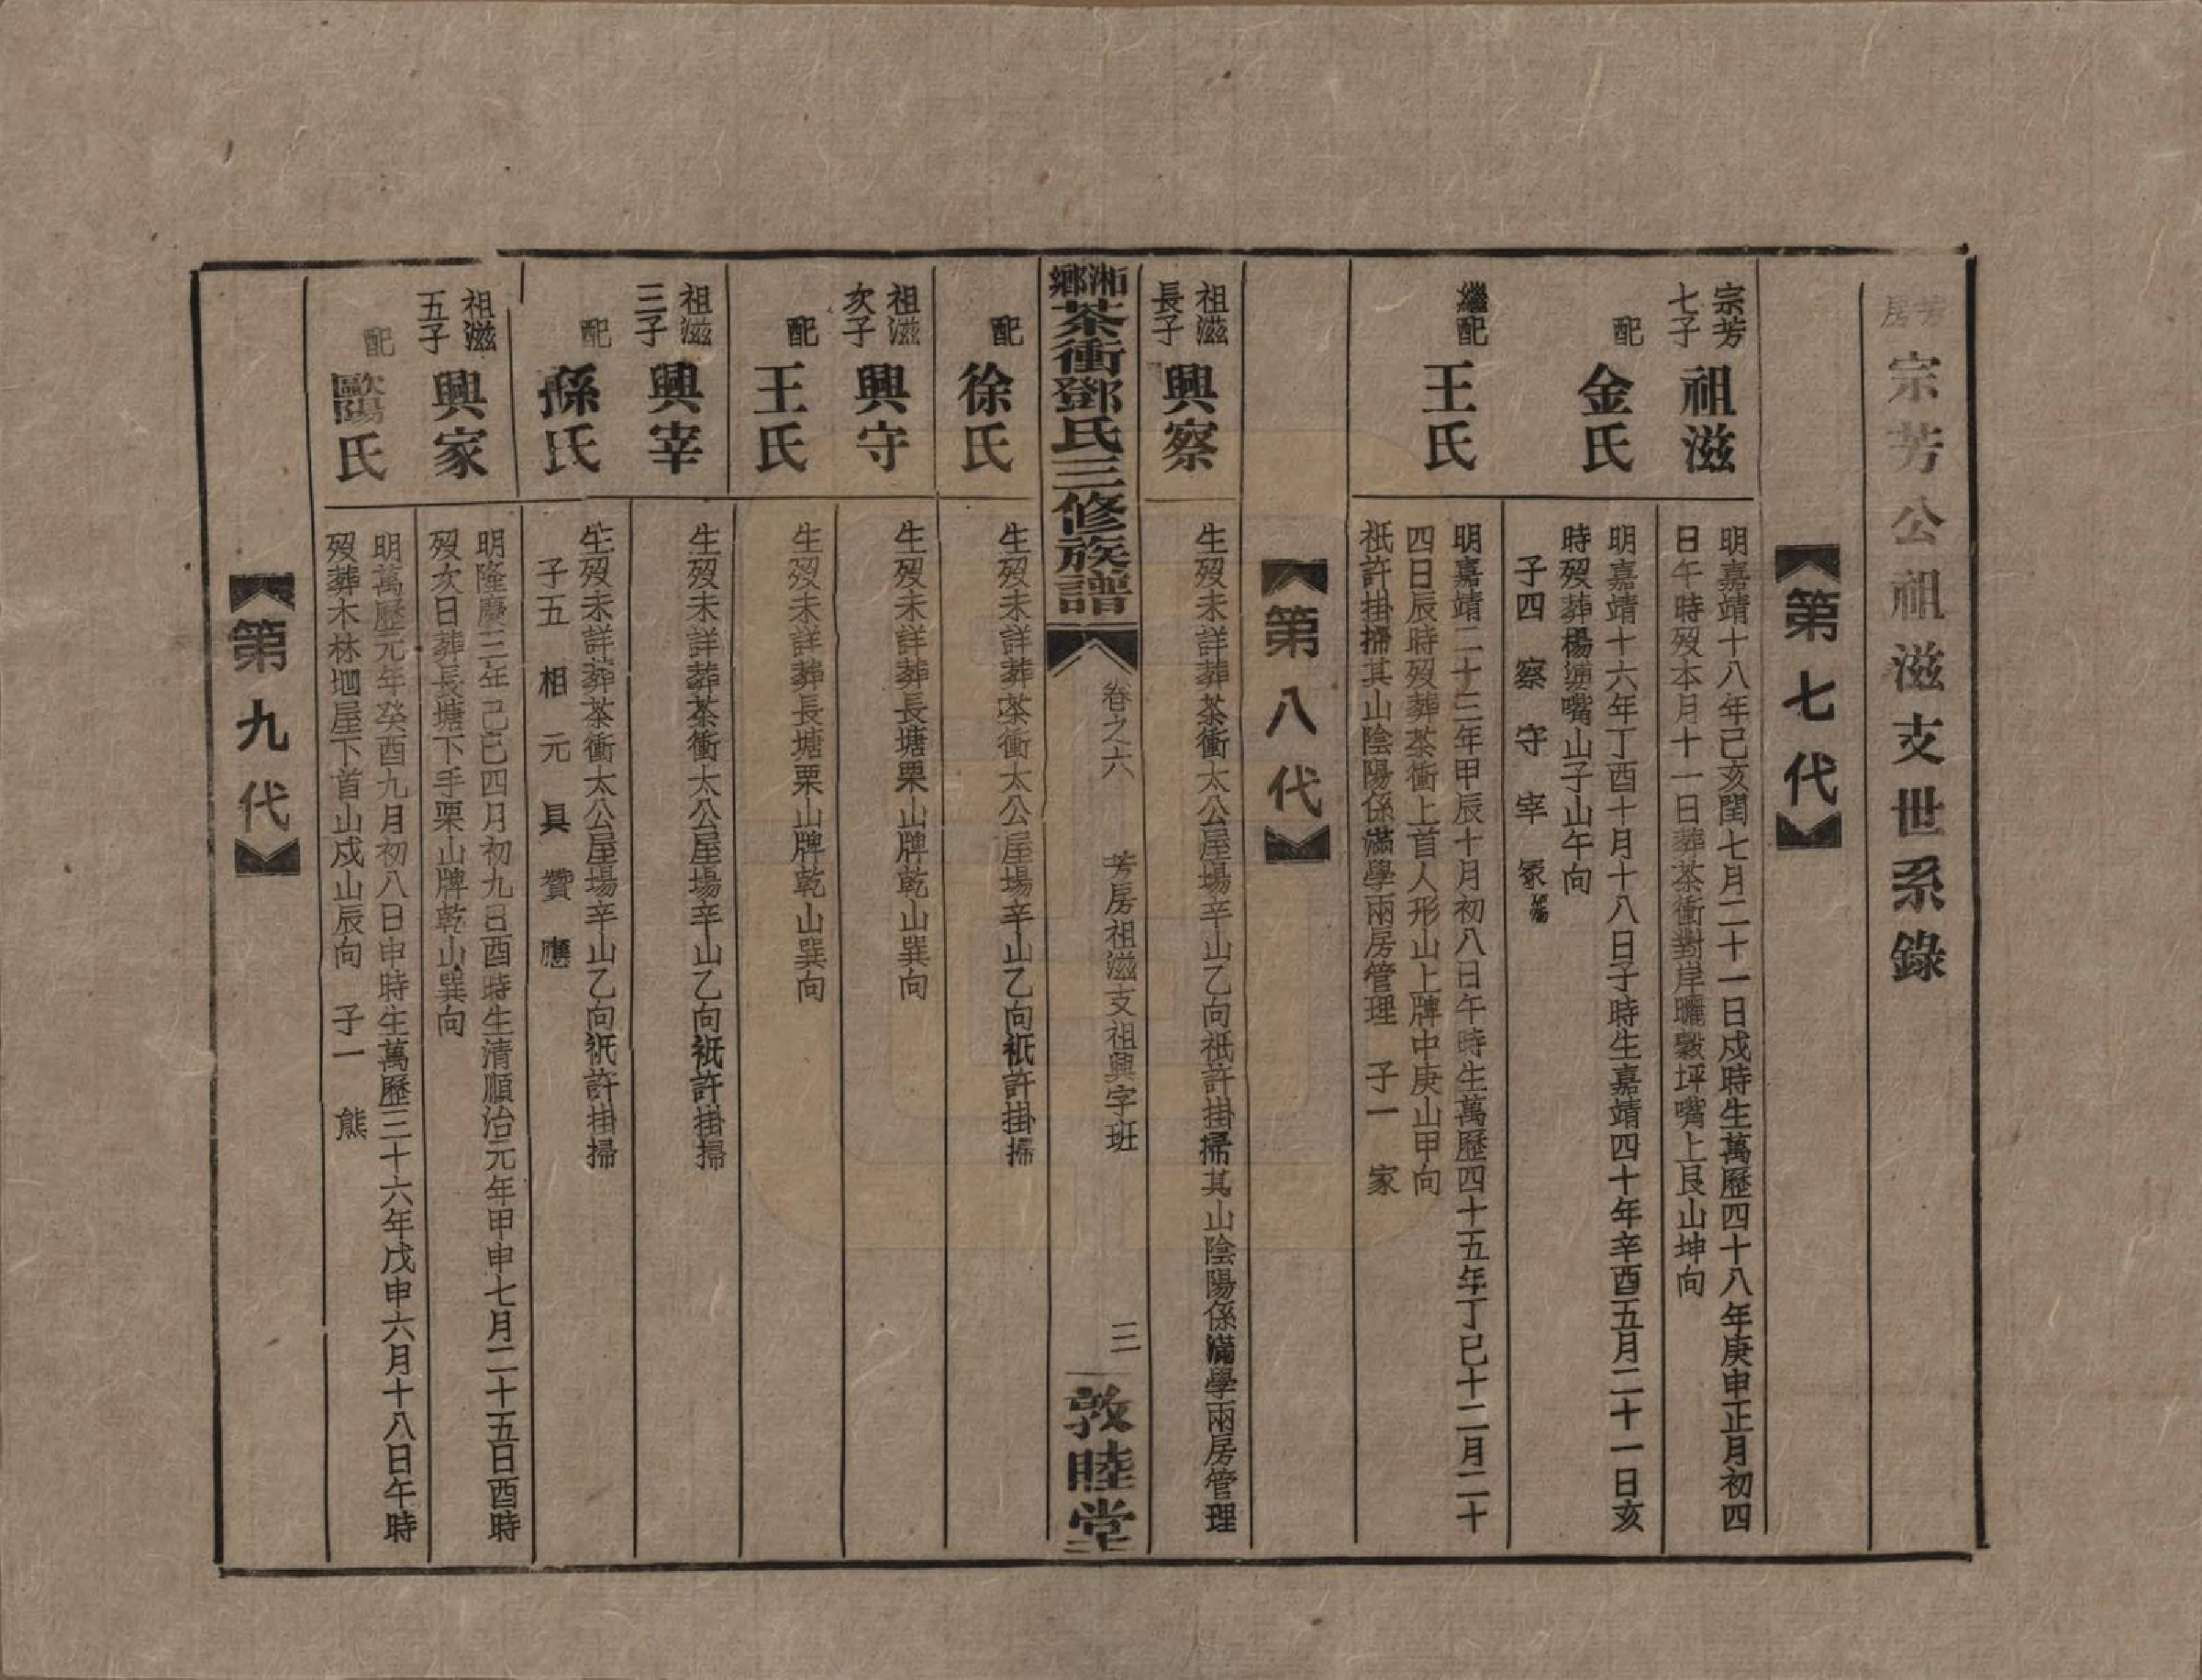 芳房 宗芳公祖滋支世系錄
第七代
宗芳七子 祖滋
明嘉靖十八年己亥閏七月二十一日戍時生萬歷四十八年庚申正月初四
日午時歿本月十一日葬茶衝對岸曬穀坪嘴上艮山坤向
配 金氏
明嘉靖十六年丁酉十月十八日子時生嘉靖四十年辛酉五月二十一日亥
時歿葬楊嘴山子山午向
子四 察 守 宰 冡
繼配 王氏
明嘉靖二十三年甲辰十月初八日午時生萬歷四十五年丁巳十二月二十
四日辰時歿葬茶衝上首人形山上牌中庚山甲向
祇許掛掃其山陰陽係滿學兩房管理 子一 家
第八代
祖滋長子 興察
生歿未詳葬茶衝太公屋場辛山乙向祇許掛掃其山陰陽係滿學兩房管理
湘鄉茶衝鄧氏三修族譜 卷之六 芳房祖滋支祖興字班 三 敦睦堂
配 徐氏
生歿未詳葬茶衝太公屋場辛山乙向祇許掛掃
祖滋次子 興守
生歿未詳葬長塘栗山牌乾山巽向
配 王氏
生歿未詳葬長塘栗山牌乾山巽向
祖滋三子 興宰
生歿未詳葬茶衝太公屋場辛山乙向祇許掛掃
配 孫氏
生歿未詳葬茶衝太公屋場辛山乙向祇許掛掃
子五 相 元 具 贊 應
祖滋五子 興家
明隆慶三年己巳四月初九日酉時生清順治元年甲申七月二十五日酉時
歿次日葬長塘下手栗山牌乾山巽向
配 歐陽氏
明萬歷元年癸酉九月初八日申時生萬歷三十六年戊申六月十八日午時
歿葬木林坳屋下首山戍山辰向 子一 熊
第九代